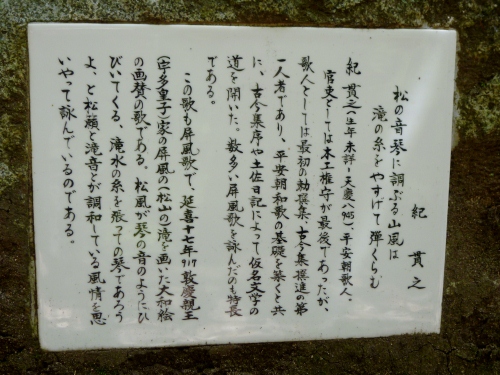 紀 貫之
松の音琴に調ぶる山風は
滝の糸をやすげて弾くらむ
紀 貫之(生年未詳―天慶八945)、平安朝歌人、
官吏としては木工権守が最後であったが、
歌人としては最初の勅撰集、古今集撰進の第
一人者であり、平安朝和歌の基礎を築くと共
に、古今集序や土佐日記によって仮名文学の
道を開いた。数多い屏風歌を詠んだのも特長
である。
この歌も屏風歌で、延喜十七年917敦慶親王
(宇多皇子)家の屏風の(松山の滝)を画いた大和絵
の画賛の歌である。松風が琴の音のようにひ
びいてくる、滝水の糸を張っての琴であろう
よ、と松籟と滝音とが調和している風情を思
いやって詠んでいるのである。